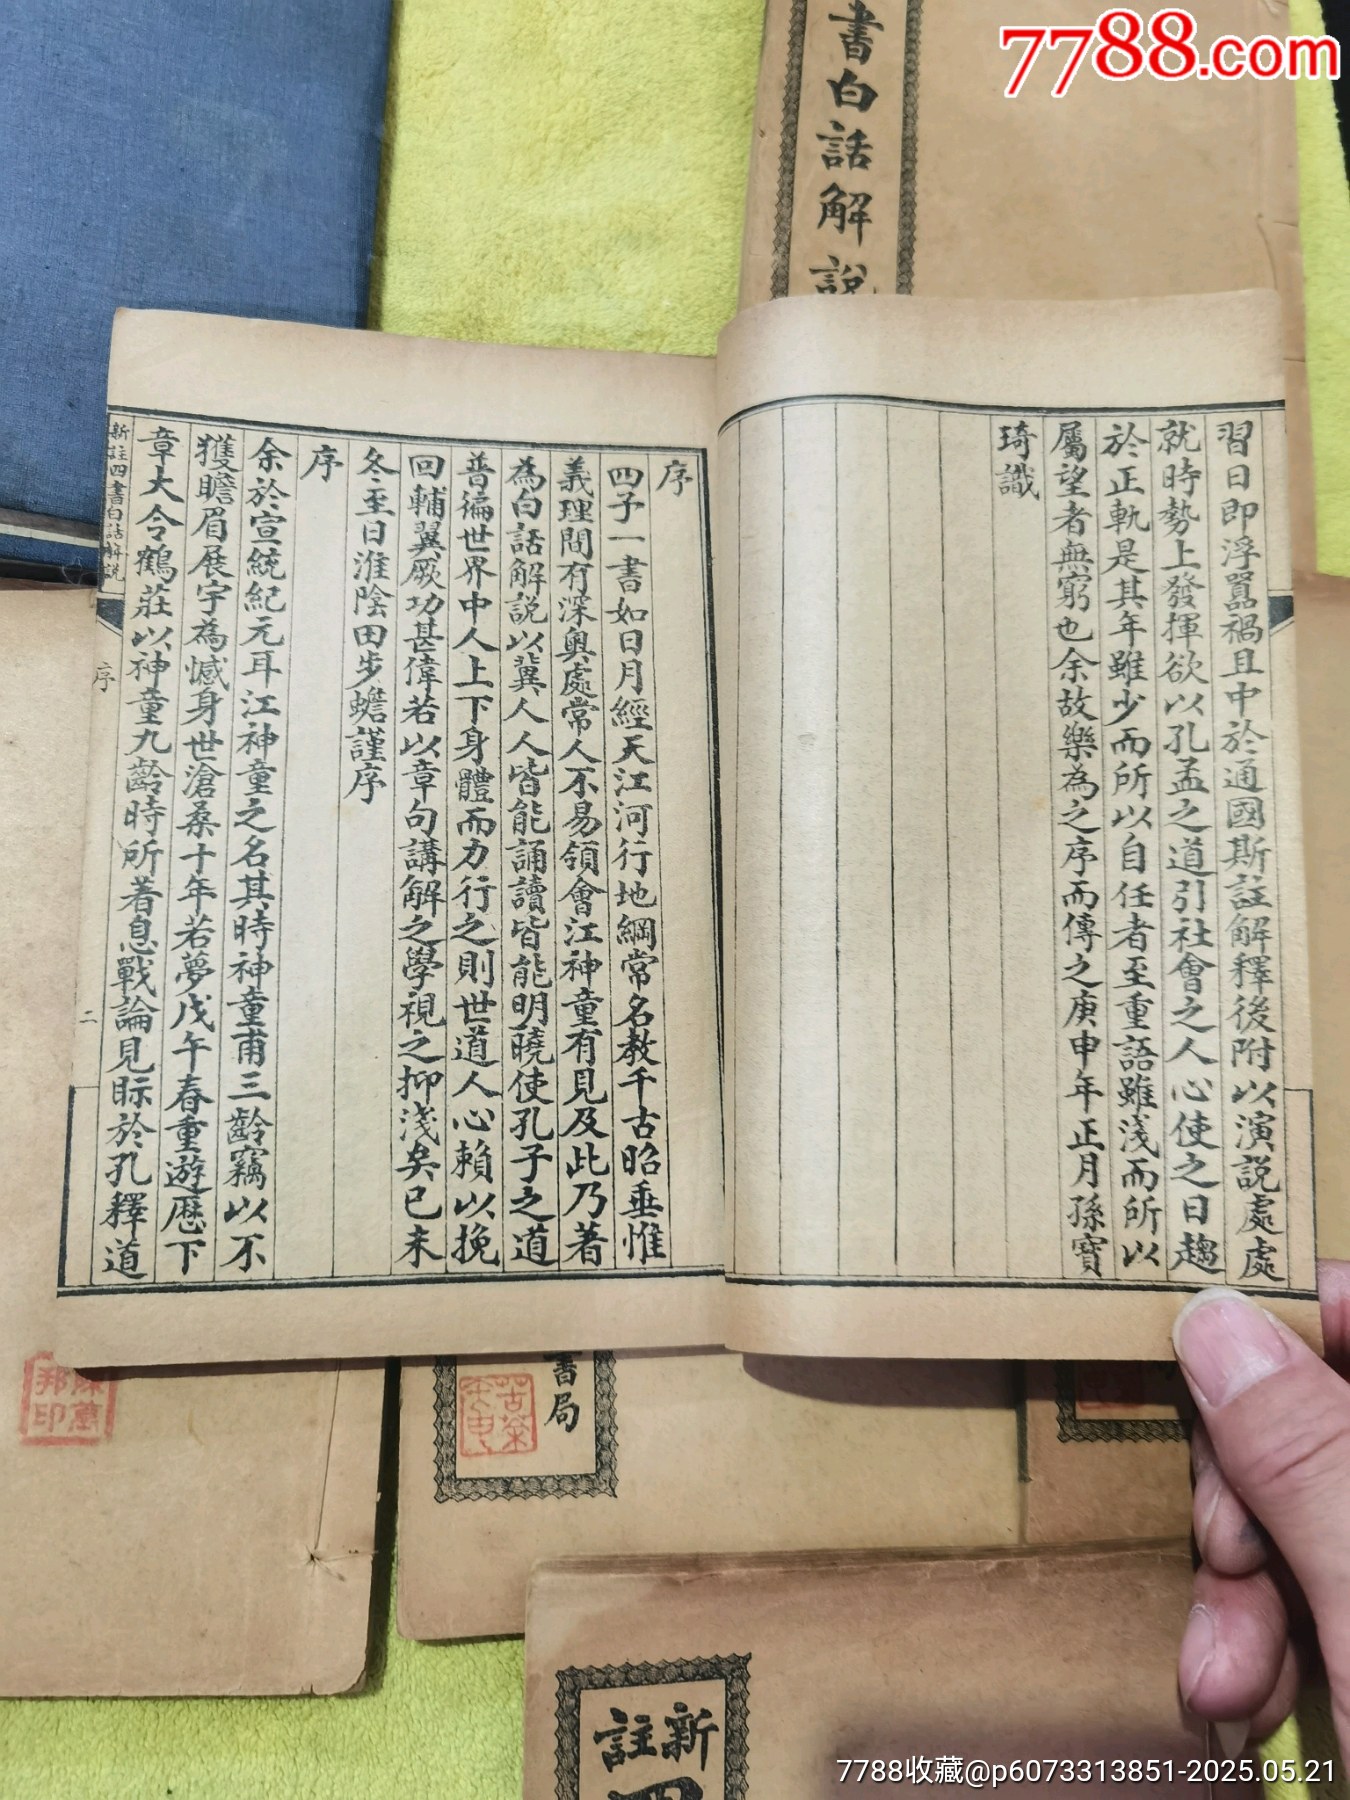 7788.com
書白話解說
習日即浮囂禍且中於通國斯註解釋後附以演説處處
就時勢上發揮欲以孔孟之道引社會之人心使之日趨
於正軌是其年雖少而所以自任者至重語雖淺而所以
屬望者無窮也余故樂為之序而傳之庚申年正月孫寶
琦識
序
四子一書如日月經天江河行地綱常名教千古昭垂惟
義理間有深奧處常人不易領會江神童有見及此乃著
為白話解説以冀人人皆能誦讀皆能明曉使孔子之道
普徧世界中人上下身體而力行之則世道人心賴以挽
回輔翼厥功甚偉若以章句講解之學視之抑淺矣已未
冬至日淮陰田步蟾謹序
序
余於宣統紀元耳江神童之名其時神童甫三齡竊以不
獲瞻眉展宇為憾身世滄桑十年若夢戊午春重遊歷下
章大令鶴莊以神童九齡時所著息戰論見眎於孔釋道
新註四書白話解説
序
二
書局
邦印
新註
四
7788收藏@p6073313851-2025.05.21